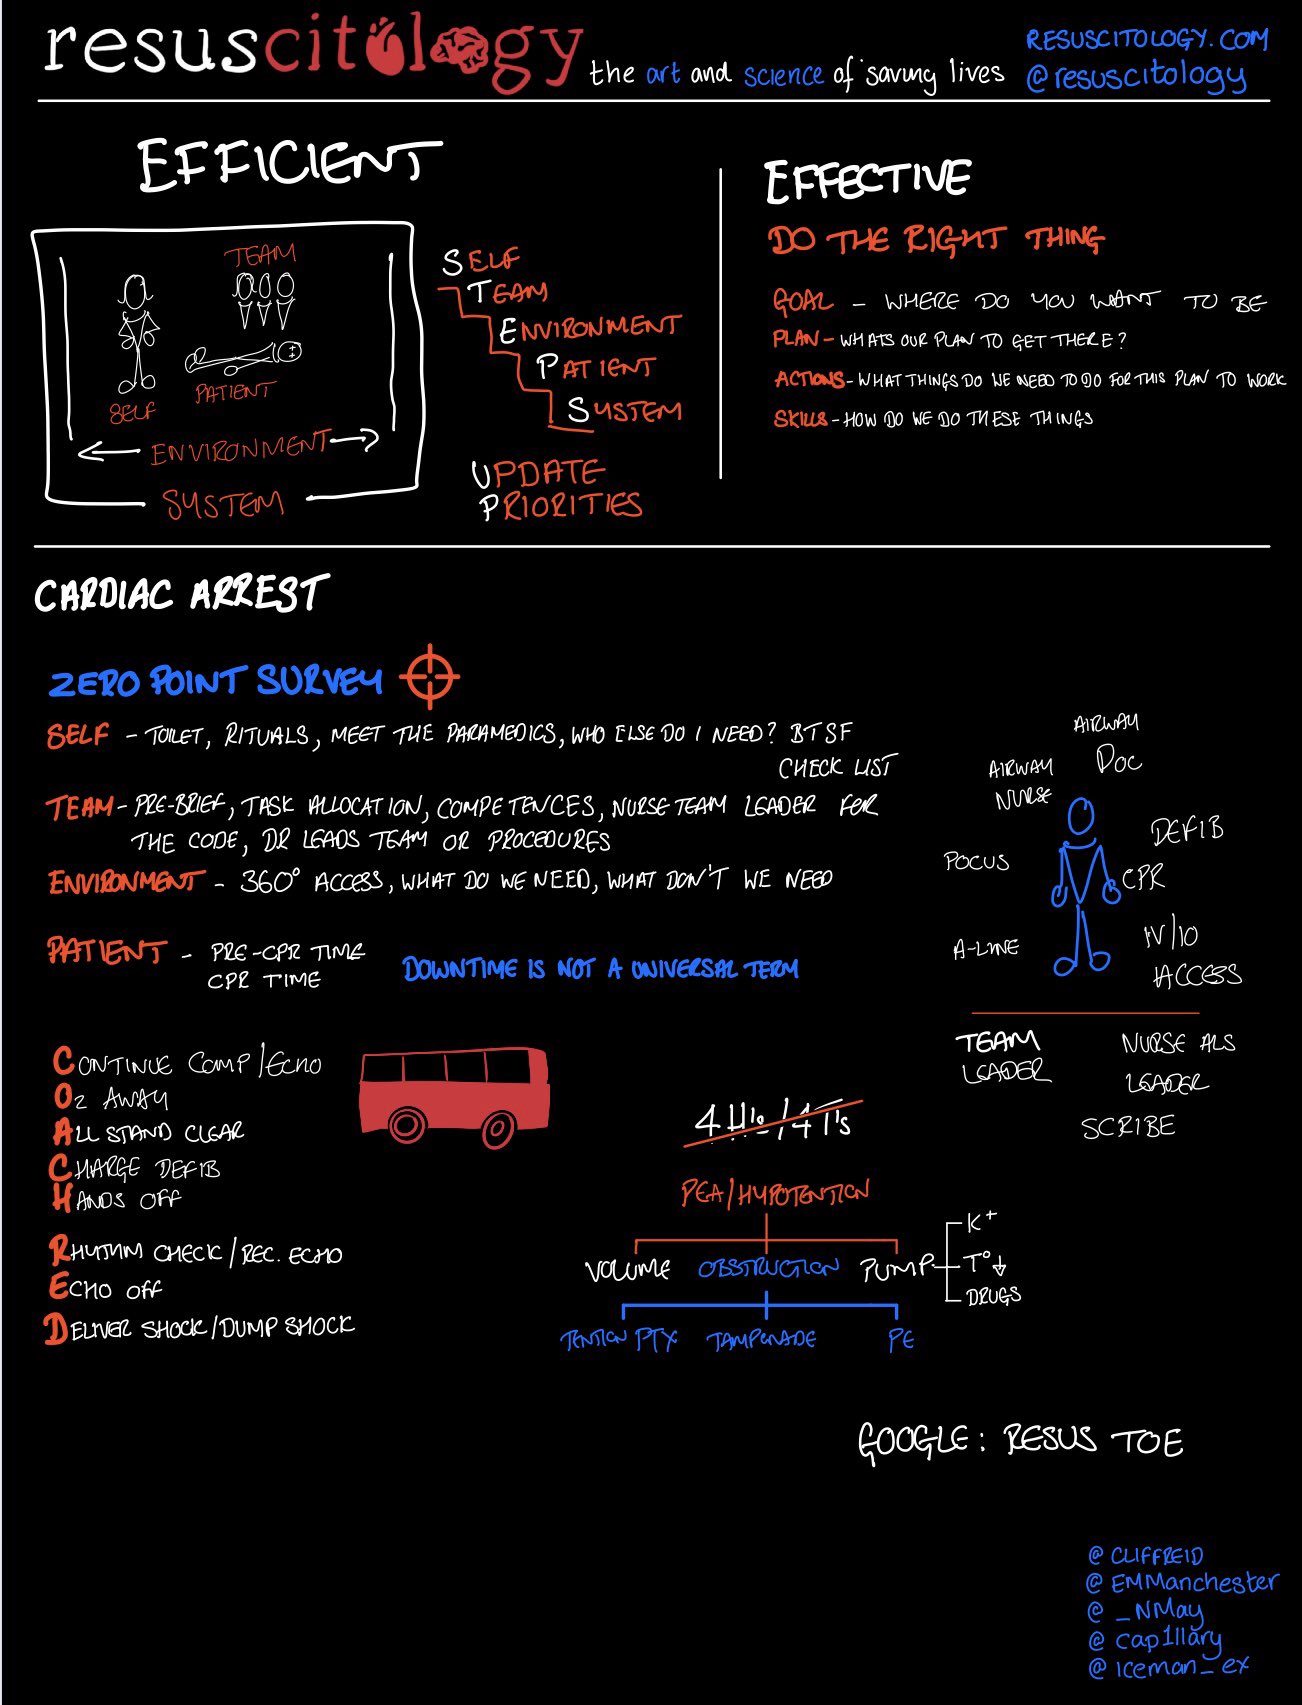 resuscitology
the art and science of saving lives
RESUSCITOLOGY.COM
@resuscitology
EFFICIENT
TEAM
SELF
PATIENT
ENVIRONMENT
SYSTEM
SELF
TEAM
ENVIRONMENT
PATIENT
SYSTEM
UPDATE
PRIORITIES
EFFECTIVE
DO THE RIGHT THING
GOAL - WHERE DO YOU WANT TO BE
PLAN - WHATS OUR PLAN TO GET THERE?
ACTIONS - WHAT THINGS DO WE NEED TO DO FOR THIS PLAN TO WORK
SKILLS - HOW DO WE DO THESE THINGS
CARDIAC ARREST
ZERO POINT SURVEY
SELF - TOILET, RITUALS, MEET THE PARAMEDICS, WHO ELSE DO I NEED? BTSF
CHECK LIST
TEAM - PRE-BRIEF, TASK ALLOCATION, COMPETENCES, NURSE TEAM LEADER FOR
THE CODE, DR LEADS TEAM OR PROCEDURES
ENVIRONMENT - 360° ACCESS, WHAT DO WE NEED, WHAT DON'T WE NEED
PATIENT - PRE-CPR TIME
CPR TIME
DOWNTIME IS NOT A UNIVERSAL TERM
AIRWAY
DOC
AIRWAY
NURSE
DEFIB
POCUS
CPR
A-LINE
IV/IO
ACCESS
TEAM
LEADER
NURSE ALS
LEADER
SCRIBE
CONTINUE COMP/ECHO
O2 AWAY
ALL STAND CLEAR
CHARGE DEFIB
HANDS OFF
RHYTHM CHECK/REC. ECHO
ECHO OFF
DELIVER SHOCK/DUMP SHOCK
4 H's/4 T's
PEA/HYPOTENTION
VOLUME
OBSTRUCTION
PUMP
K+
T° ↓
DRUGS
TENTION PTX
TAMPONADE
PE
GOOGLE: RESUS TOE
@ CLIFFREID
@ EMManchester
@ _NMay
@ cap1llary
@ iceman_ex